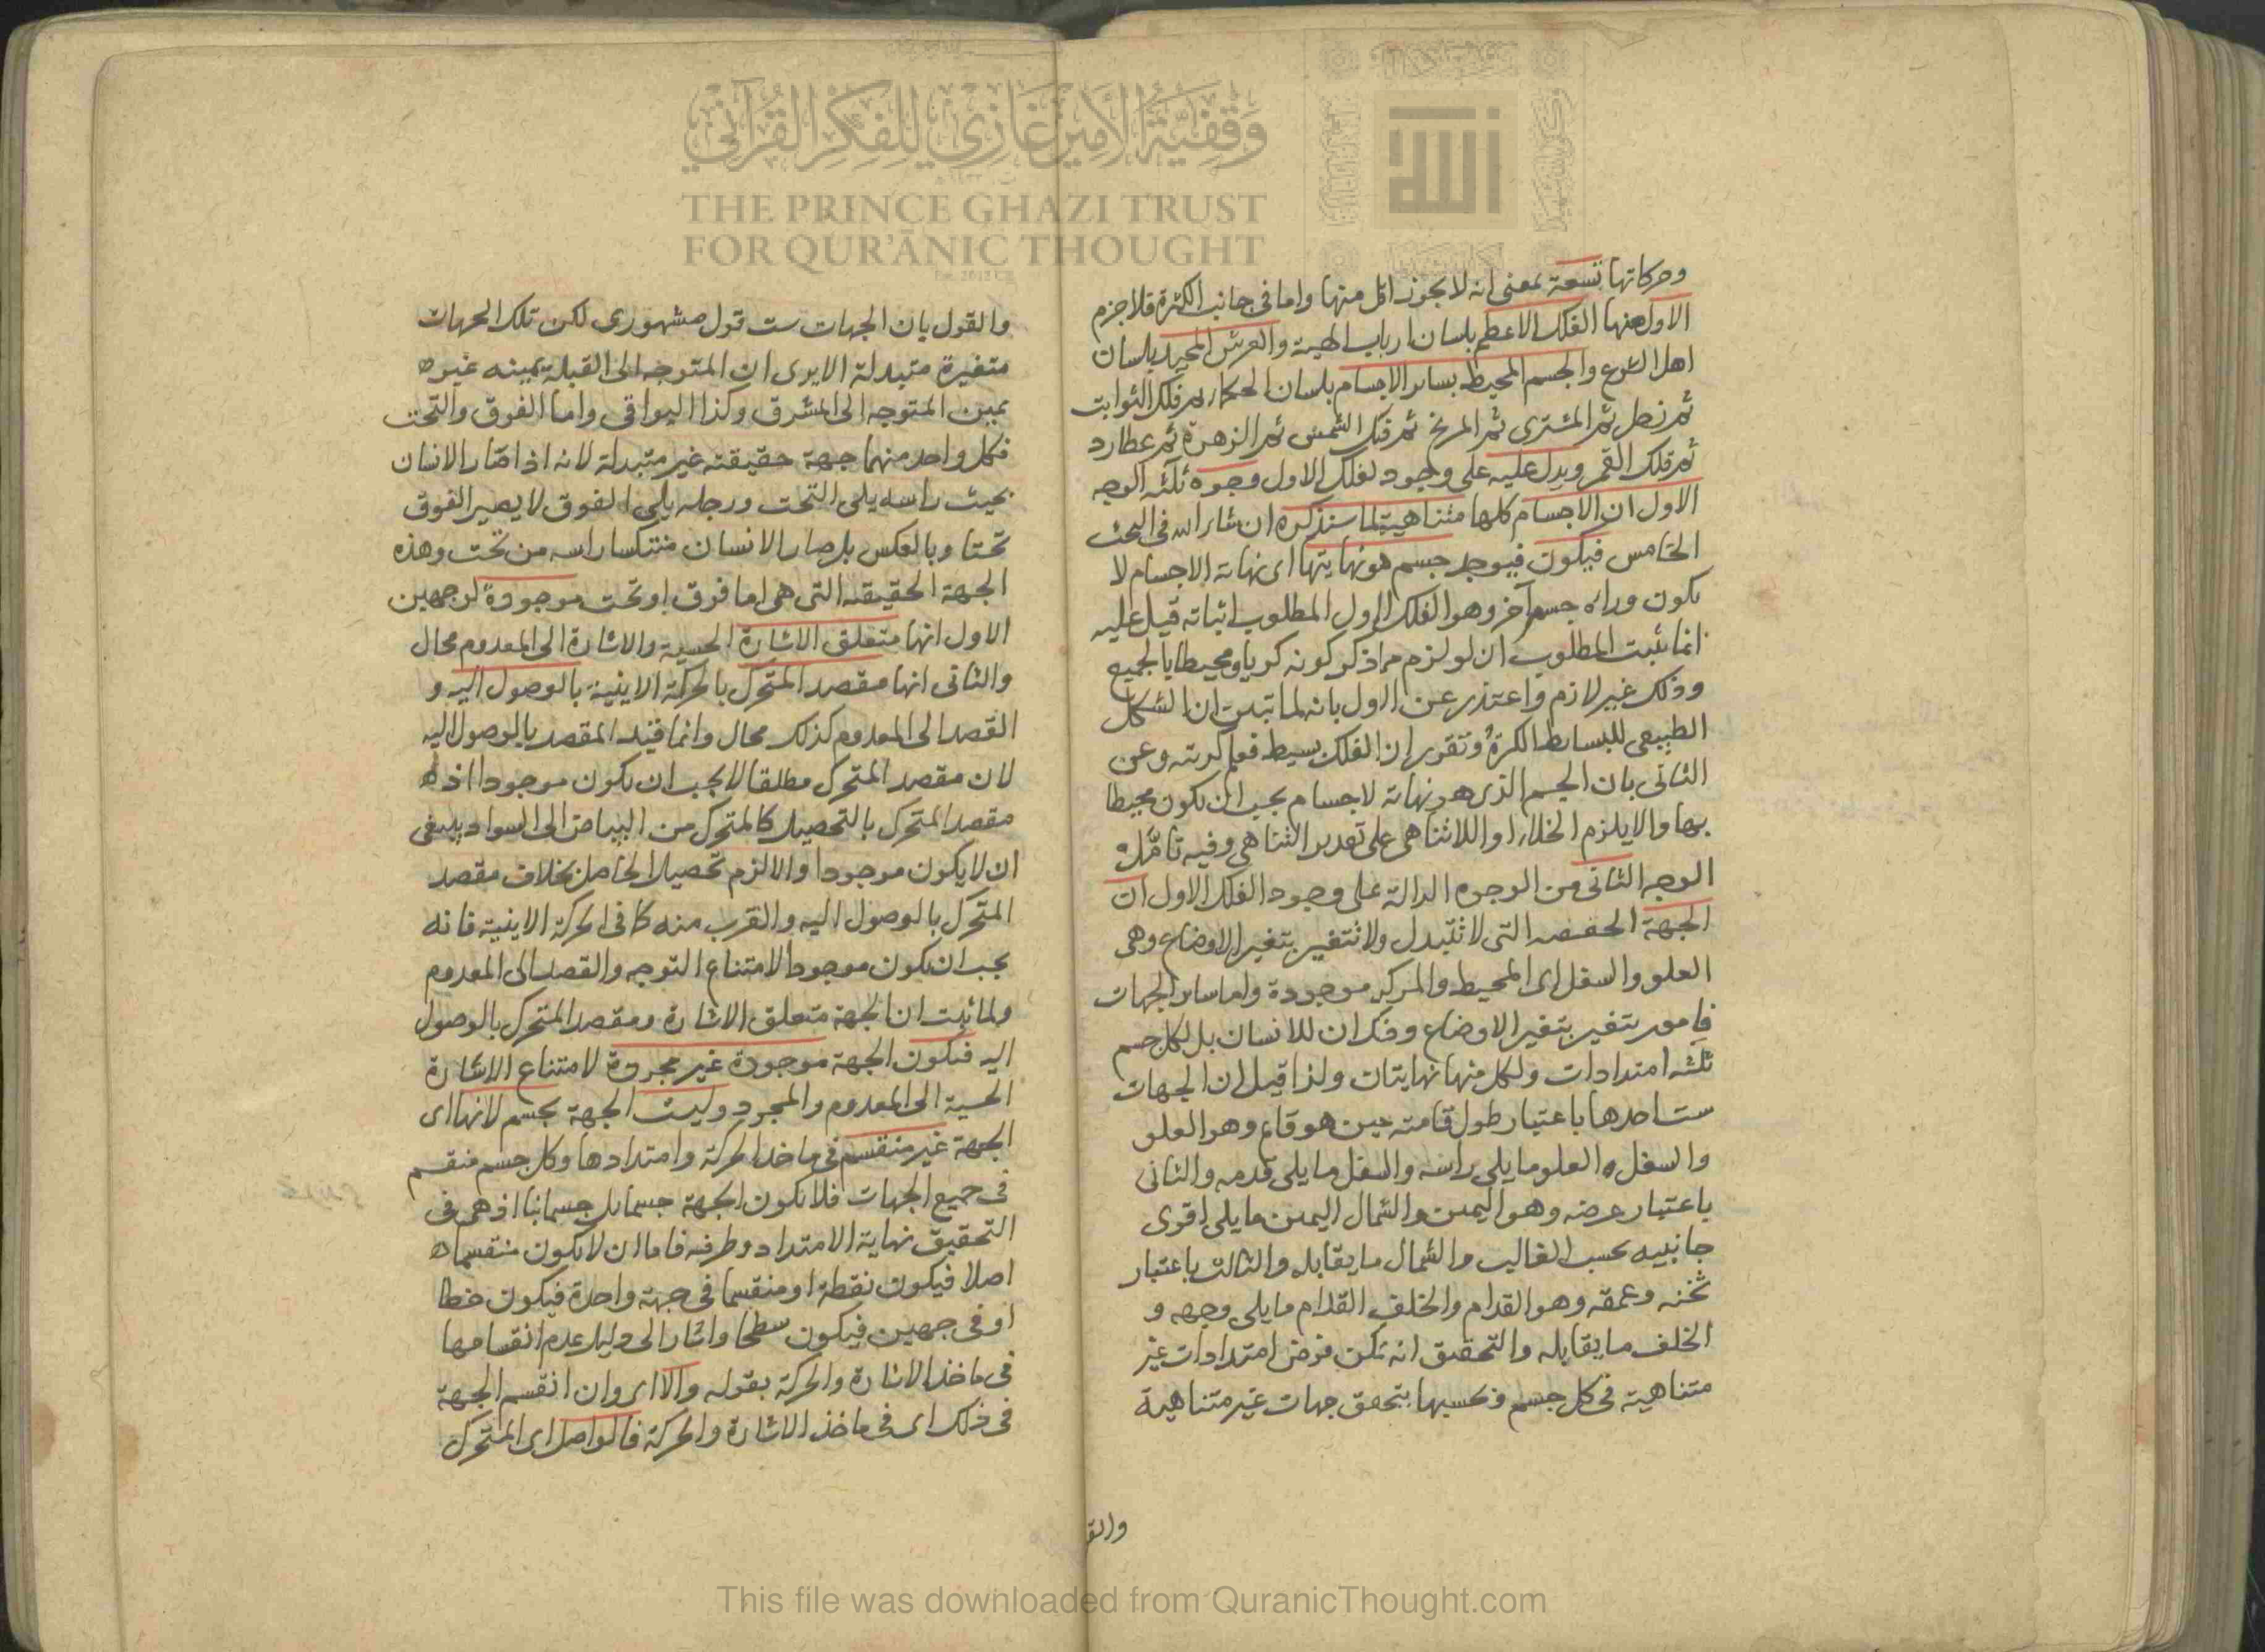 وقفية الأمير غازي للفكر القرآني
THE PRINCE GHAZI TRUST
FOR QUR'ĀNIC THOUGHT
الله
وحركاتها تسعة بمعنى انه لا يجوز اقل منها واما فى جانب الكثرة فلا جزم
الاول منها الفلك الاعظم بلسان ارباب الهيئة والعرش المجيد بلسان
اهل الشرع والجسم المحيط بسائر الاجسام بلسان الحكماء ثم فلك الثوابت
ثم زحل ثم المشترى ثم المريخ ثم فلك الشمس ثم الزهرة ثم عطارد
ثم فلك القمر ويدل عليه على وجود لفلك الاول وجوه ثلثه الوجه
الاول ان الاجسام كلها متناهية لما سنذكره ان شاء الله فى البحث
الخامس فيكون فيوجد جسم هو نهايتها اى نهاية الاجسام لا
يكون وراءه جسم آخر وهو الفلك الاول المطلوب اثباته قيل عليه
انما يثبت المطلوب ان لو لزم مما ذكر كونه كريا ومحيطا بالجميع
وذلك غير لازم واعتذر عن الاول بانه لما تبين ان الشكل
الطبيعى للبسائط الكرة وتقرر ان الفلك بسيط فعلم كريته وعن
الثانى بان الجسم الذى هو نهاية لاجسام يجب ان يكون محيطا
بها والا يلزم الخلاء او اللاتناهى على تقدير التناهى وفيه تأمل
الوجه الثانى من الوجوه الدالة على وجود الفلك الاول ان
الجهة الحقيقيه التى لا تتبدل ولا تتغير بتغير الاوضاع وهى
العلو والسفل اى المحيط والمركز موجودة واما سائر الجهات
فامور تتغير بتغير الاوضاع وذلك ان للانسان بل لكل جسم
ثلثه امتدادات ولكل منها نهايتان ولذا قيل ان الجهات
ست احدها باعتبار طول قامته حين هو قائم وهو العلو
والسفل والعلو ما يلى راسه والسفل ما يلى قدمه والثانى
باعتبار عرضه وهو اليمين والشمال اليمين ما يلى اقوى
جانبيه بحسب الغالب والشمال ما يقابله والثالث باعتبار
ثخنه وعمقه وهو القدام والخلف القدام ما يلى وجهه و
الخلف ما يقابله والتحقيق انه يمكن فرض امتدادات غير
متناهية فى كل جسم وبحسبها يتحقق جهات غير متناهية
والقو
والقول بان الجهات ست قول مشهورى لكن تلك الجهات
متغيرة متبدلة الا يرى ان المتوجه الى القبلة يمينه غير
يمين المتوجه الى المشرق وكذا البواقى واما الفوق والتحت
فكل واحد منهما جهة حقيقته غير متبدلة لانه اذا صار الانسان
بحيث راسه يلى التحت ورجله يلى الفوق لا يصير الفوق
تحتا وبالعكس بل صار الانسان منتكسا راسه من تحت وهذه
الجهة الحقيقه التى هى اما فوق او تحت موجودة لوجهين
الاول انها متعلق الاشارة الحسية والاشارة الى المعدوم محال
والثانى انها مقصد المتحرك بالحركة الاينية بالوصول اليه و
القصد الى المعدوم كذلك محال وانما قيد المقصد بالوصول اليه
لان مقصد المتحرك مطلقا لا يجب ان يكون موجودا اذ
مقصد المتحرك بالتحصيل كالمتحرك من البياض الى السواد ينبغى
ان لا يكون موجودا والا لزم تحصيل الحاصل بخلاف مقصد
المتحرك بالوصول اليه والقرب منه كما فى الحركة الاينية فانه
يجب ان يكون موجودا لامتناع التوجه والقصد الى المعدوم
ولما ثبت ان الجهة متعلق الاشارة ومقصد المتحرك بالوصول
اليه فيكون الجهة موجودة غير مجردة لامتناع الاشارة
الحسية الى المعدوم والمجرد وليست الجهة بجسم لانها اى
الجهة غير منقسم فى ماخذ الحركة وامتدادها وكل جسم منقسم
فى جميع الجهات فلا يكون الجهة جسما بل جسمانيا اذ هى فى
التحقيق نهاية الامتداد وطرفه فاما ان لا يكون منقسما
اصلا فيكون نقطة او منقسما فى جهة واحدة فيكون خطا
او فى جهتين فيكون سطحا واشار الى دليل عدم انقسامها
فى ماخذ الاشارة والحركة بقوله والا اى وان انقسم الجهة
فى ذلك اى فى ماخذ الاشارة والحركة فالواصل اى المتحرك
This file was downloaded from QuranicThought.com